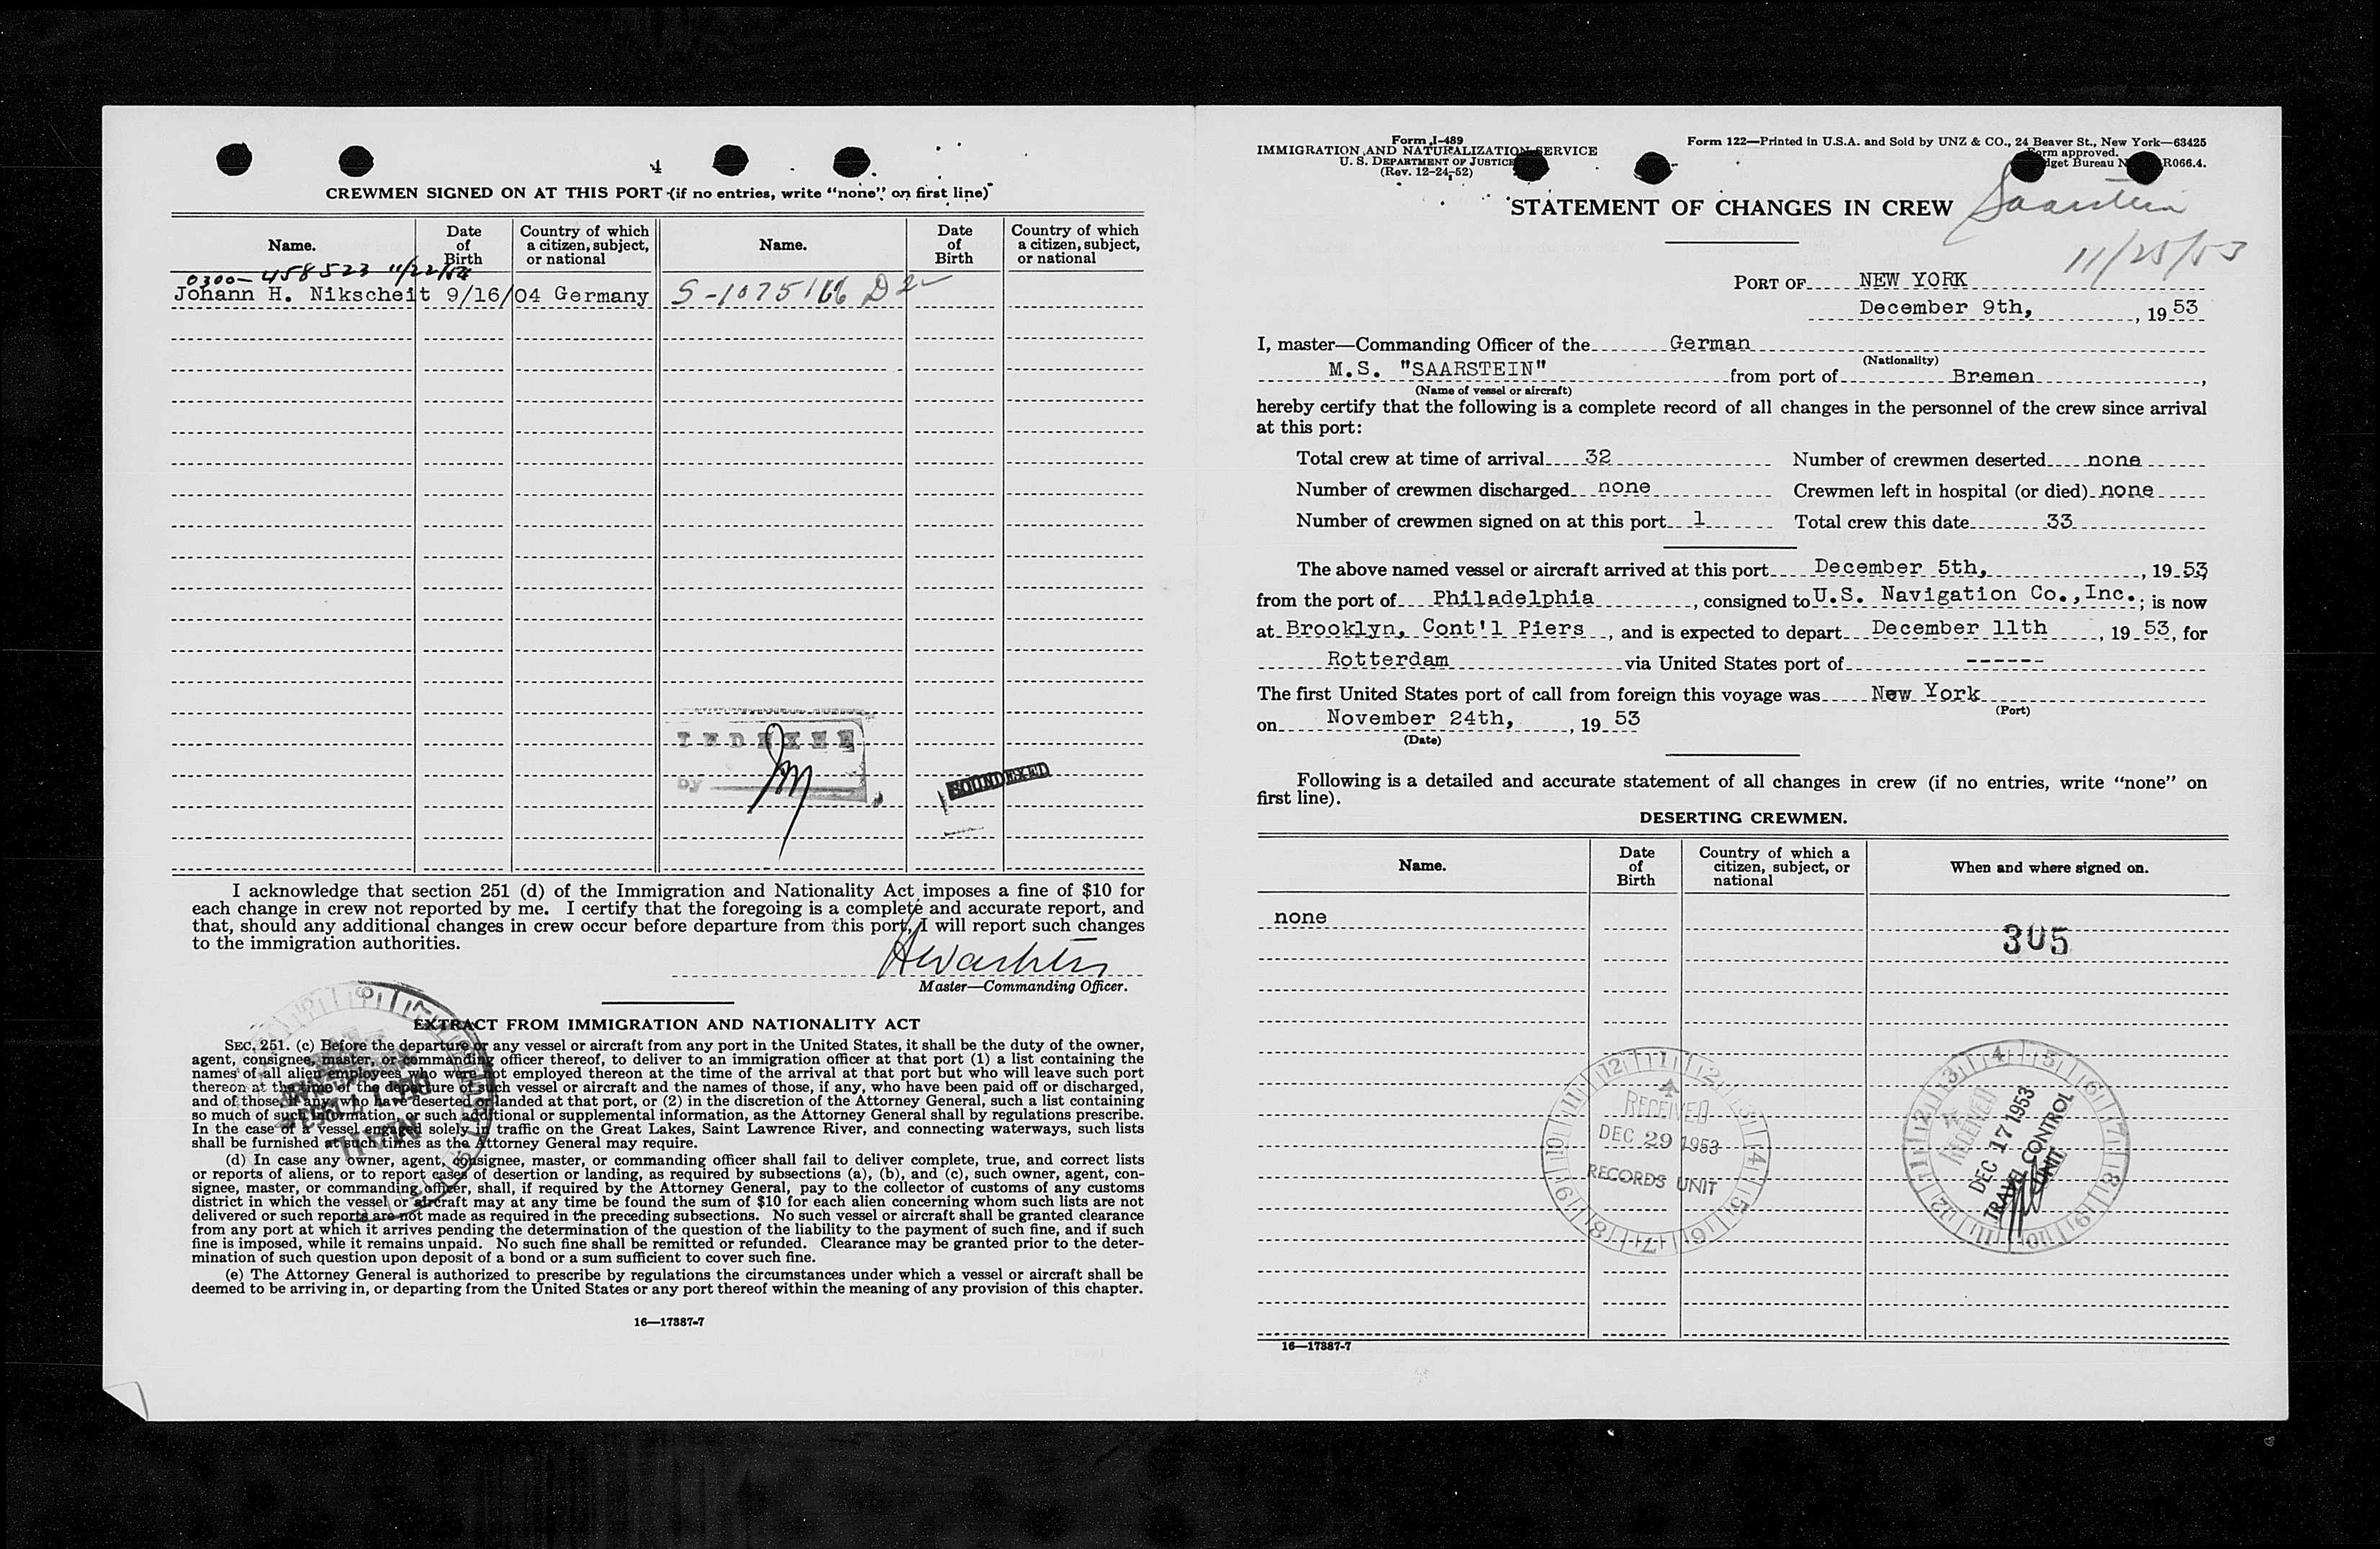 4
CREWMEN SIGNED ON AT THIS PORT (if no entries, write "none" on first line)
Name. Date of Birth Country of which a citizen, subject, or national Name. Date of Birth Country of which a citizen, subject, or national
0300-458523 11/22/54
Johann H. Nikscheit 9/16/04 Germany S-1075166 D2
INDEXED
by
SOUNDEXED
I acknowledge that section 251 (d) of the Immigration and Nationality Act imposes a fine of $10 for
each change in crew not reported by me. I certify that the foregoing is a complete and accurate report, and
that, should any additional changes in crew occur before departure from this port, I will report such changes
to the immigration authorities.
Master—Commanding Officer.
EXTRACT FROM IMMIGRATION AND NATIONALITY ACT
SEC. 251. (c) Before the departure or any vessel or aircraft from any port in the United States, it shall be the duty of the owner,
agent, consignee, master, or commanding officer thereof, to deliver to an immigration officer at that port (1) a list containing the
names of all alien employees who were not employed thereon at the time of the arrival at that port but who will leave such port
thereon at the time of the departure of such vessel or aircraft and the names of those, if any, who have been paid off or discharged,
and of those, if any, who have deserted or landed at that port, or (2) in the discretion of the Attorney General, such a list containing
so much of such information, or such additional or supplemental information, as the Attorney General shall by regulations prescribe.
In the case of a vessel engaged solely in traffic on the Great Lakes, Saint Lawrence River, and connecting waterways, such lists
shall be furnished at such times as the Attorney General may require.
(d) In case any owner, agent, consignee, master, or commanding officer shall fail to deliver complete, true, and correct lists
or reports of aliens, or to report cases of desertion or landing, as required by subsections (a), (b), and (c), such owner, agent, con-
signee, master, or commanding officer, shall, if required by the Attorney General, pay to the collector of customs of any customs
district in which the vessel or aircraft may at any time be found the sum of $10 for each alien concerning whom such lists are not
delivered or such reports are not made as required in the preceding subsections. No such vessel or aircraft shall be granted clearance
from any port at which it arrives pending the determination of the question of the liability to the payment of such fine, and if such
fine is imposed, while it remains unpaid. No such fine shall be remitted or refunded. Clearance may be granted prior to the deter-
mination of such question upon deposit of a bond or a sum sufficient to cover such fine.
(e) The Attorney General is authorized to prescribe by regulations the circumstances under which a vessel or aircraft shall be
deemed to be arriving in, or departing from the United States or any port thereof within the meaning of any provision of this chapter.
16—17887-7
Form I-489
IMMIGRATION AND NATURALIZATION SERVICE
U. S. DEPARTMENT OF JUSTICE
(Rev. 12-24-52)
Form 122—Printed in U.S.A. and Sold by UNZ & CO., 24 Beaver St., New York—63425
Form approved.
R066.4.
STATEMENT OF CHANGES IN CREW
Saarstein
11/25/53
PORT OF NEW YORK
December 9th, , 19 53
I, master—Commanding Officer of the German
(Nationality)
M.S. "SAARSTEIN" from port of Bremen ,
(Name of vessel or aircraft)
hereby certify that the following is a complete record of all changes in the personnel of the crew since arrival
at this port:
Total crew at time of arrival 32 Number of crewmen deserted none
Number of crewmen discharged none Crewmen left in hospital (or died) none
Number of crewmen signed on at this port 1 Total crew this date 33
The above named vessel or aircraft arrived at this port December 5th, , 19 53
from the port of Philadelphia , consigned to U.S. Navigation Co.,Inc. ; is now
at Brooklyn, Cont'l Piers , and is expected to depart December 11th , 19 53, for
Rotterdam via United States port of ------
The first United States port of call from foreign this voyage was New York
(Port)
on November 24th, , 19 53
(Date)
Following is a detailed and accurate statement of all changes in crew (if no entries, write "none" on
first line).
DESERTING CREWMEN.
Name. Date of Birth Country of which a citizen, subject, or national When and where signed on.
none
305
RECEIVED
DEC 29 1953
RECORDS UNIT
RECEIVED
DEC 17 1953
TRAVEL CONTROL
UNIT
16—17887-7